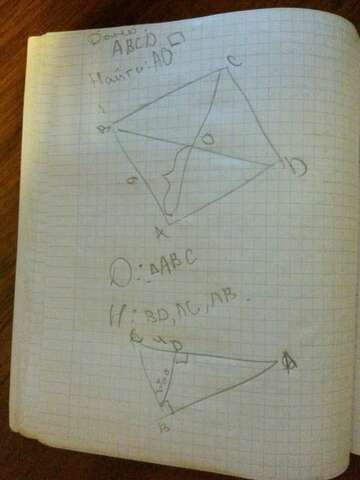 Дано:
ABCD □
Найти: AO
C
B
O
6
D
A
D: △ABC
H: BD, AC, AB.
C 4 D
A
30°
B